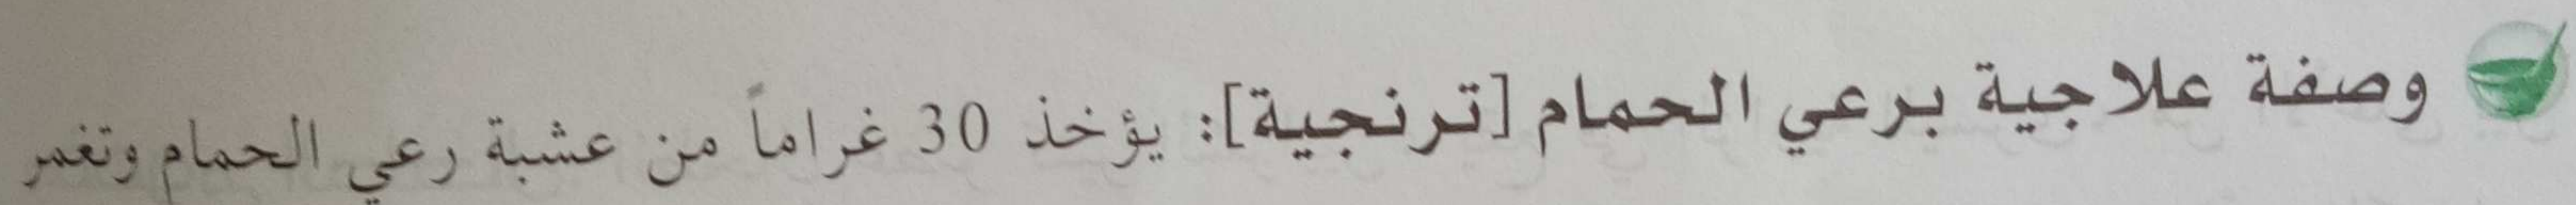 وصفة علاجية برعي الحمام [ترنجية]: يؤخذ 30 غراماً من عشبة رعي الحمام وتغمر